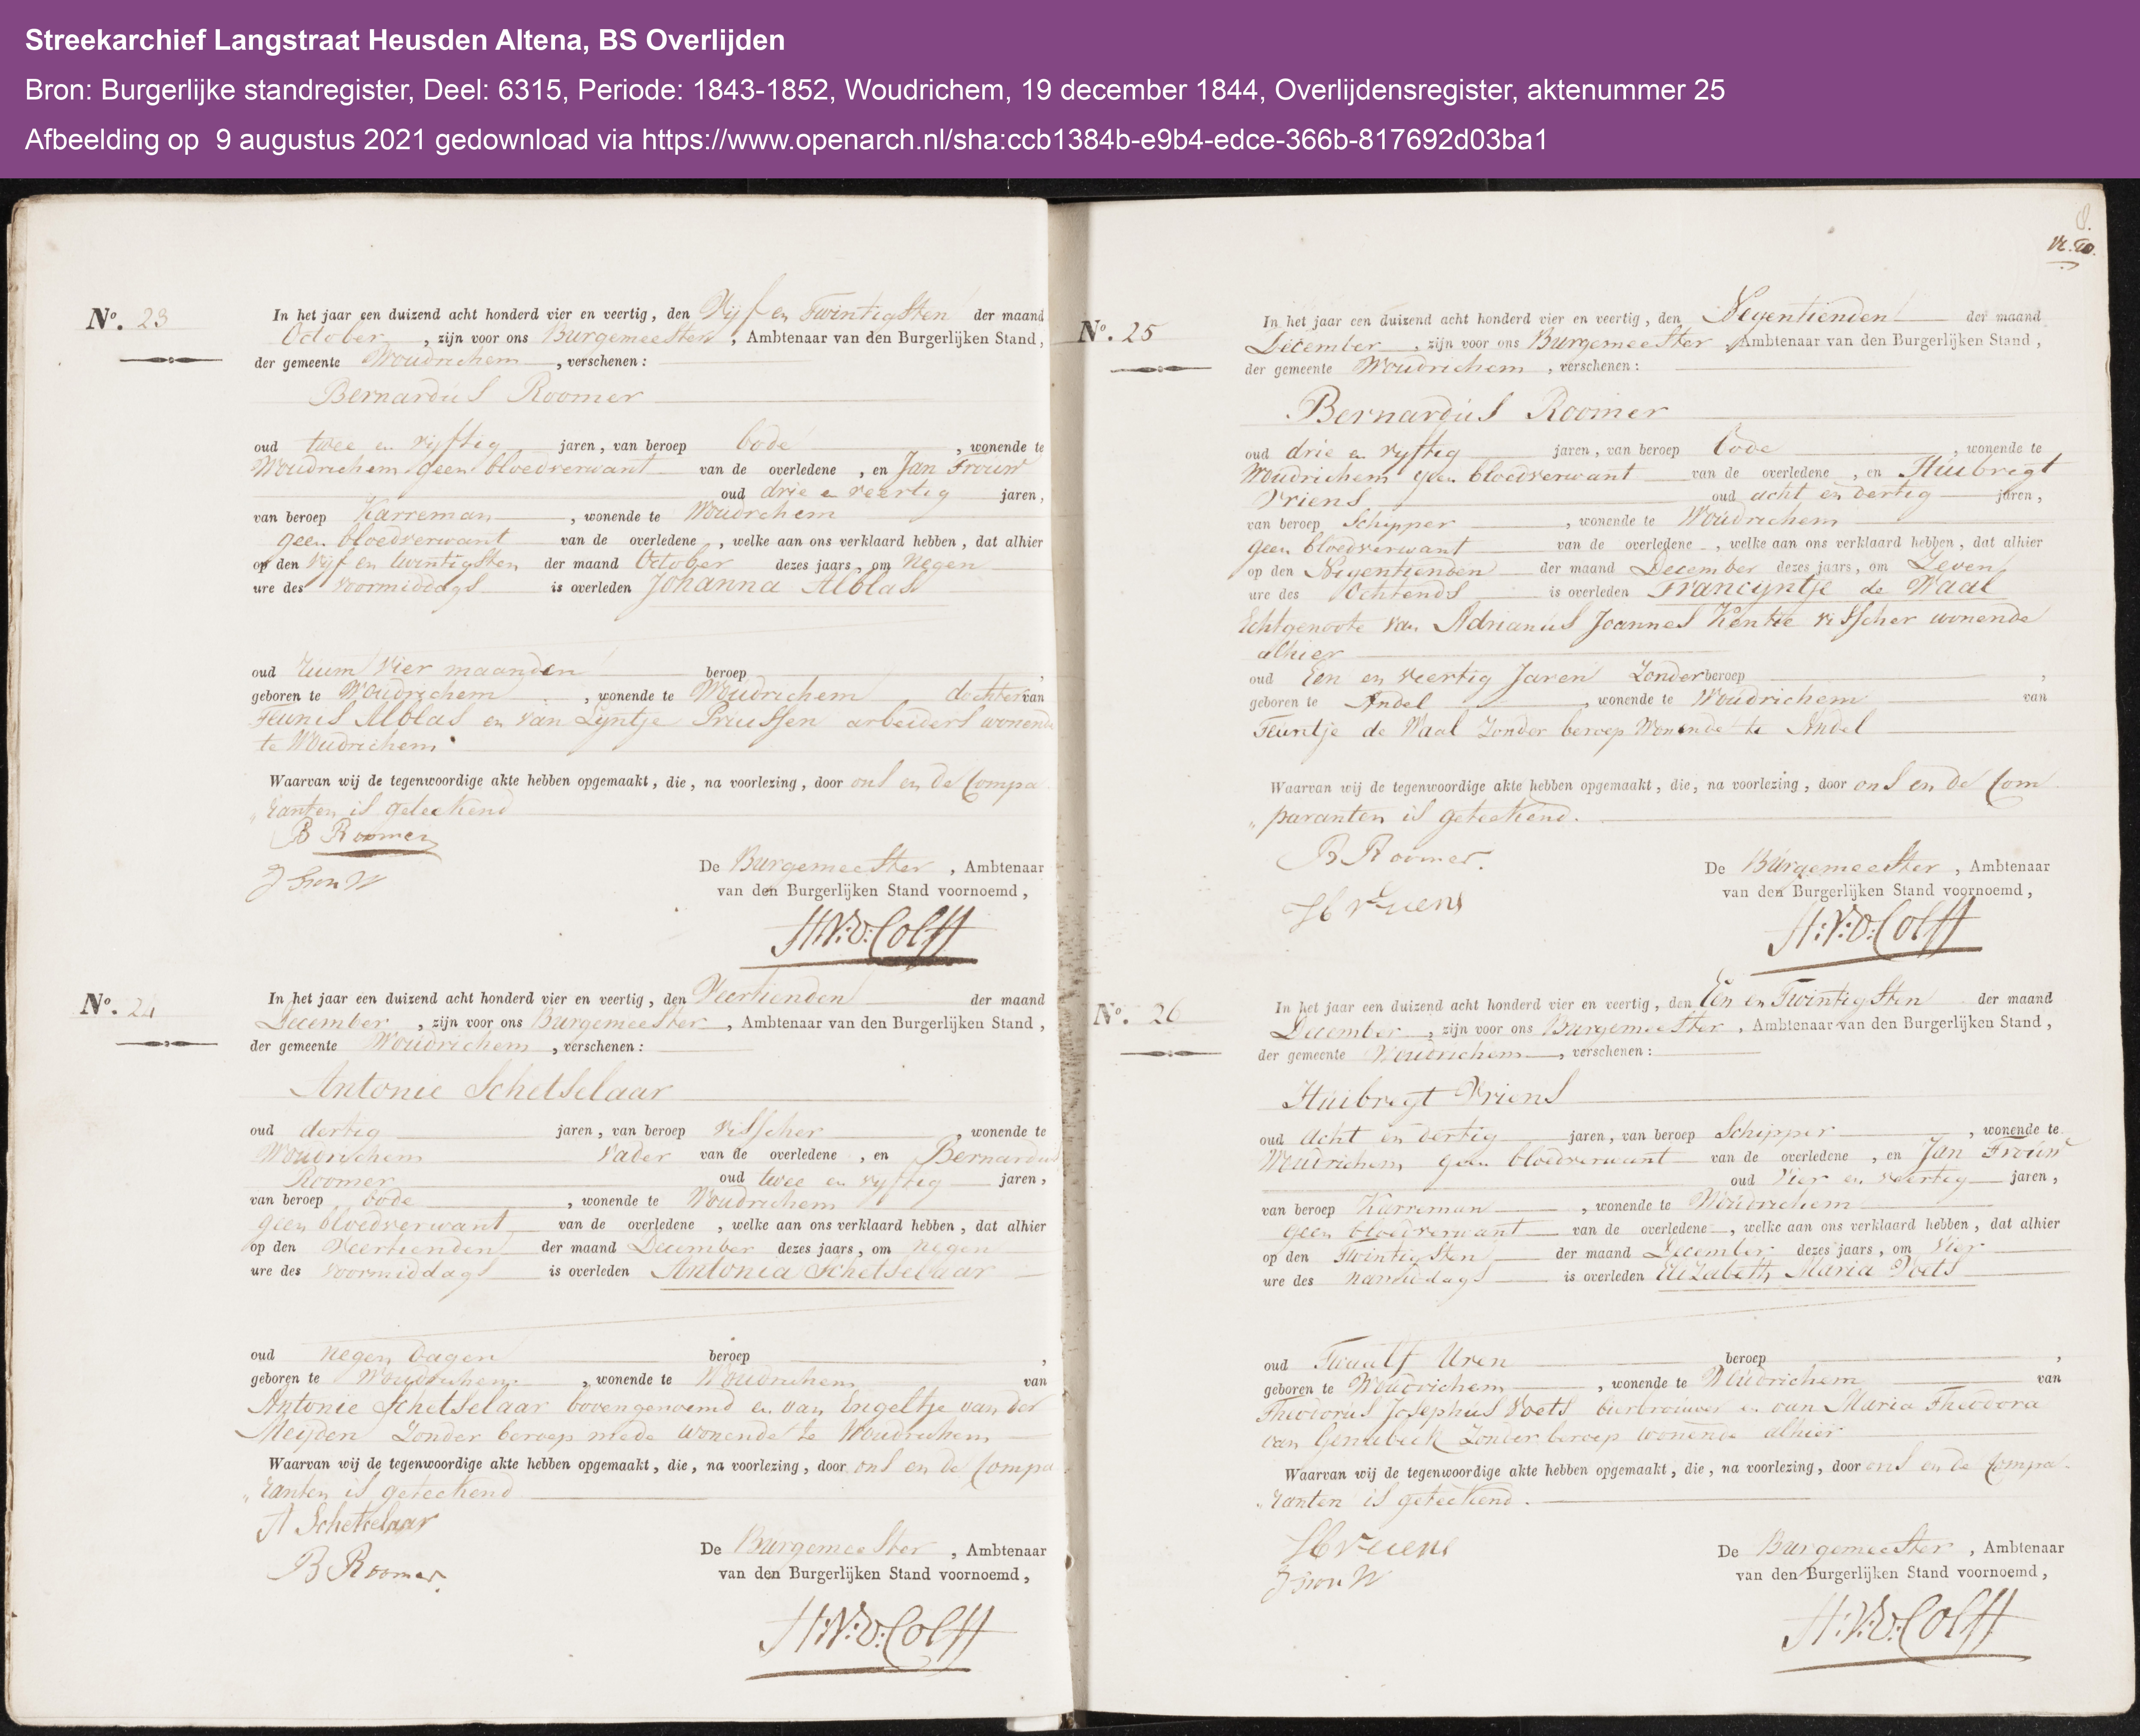 Streekarchief Langstraat Heusden Altena, BS Overlijden
Bron: Burgerlijke standregister, Deel: 6315, Periode: 1843-1852, Woudrichem, 19 december 1844, Overlijdensregister, aktenummer 25
Afbeelding op 9 augustus 2021 gedownload via https://www.openarch.nl/sha:ccb1384b-e9b4-edce-366b-817692d03ba1
No. 23
In het jaar een duizend acht honderd vier en veertig, den Vijf en Twintigsten der maand
October, zijn voor ons Burgemeester, Ambtenaar van den Burgerlijken Stand,
der gemeente Woudrichem, verschenen:
Bernardus Roomer
oud twee en vijftig jaren, van beroep bode, wonende te
Woudrichem geen bloedverwant van de overledene, en Jan Trouw
oud drie en veertig jaren,
van beroep Karreman, wonende te Woudrchem
geen bloedverwant van de overledene, welke aan ons verklaard hebben, dat alhier
op den vijf en twintigsten der maand October dezes jaars, om Negen
ure des voormiddags is overleden Johanna Alblas
oud ruim vier maanden beroep,
geboren te Woudrichem, wonende te Woudrichem dochter van
Teunis Alblas en van Lijntje Pruissen arbeiders wonende
te Woudrichem
Waarvan wij de tegenwoordige akte hebben opgemaakt, die, na voorlezing, door ons en de Compa
„ranten is geteekend
B Roomer
J Trouw
De Burgemeester, Ambtenaar
van den Burgerlijken Stand voornoemd,
H:V:D:Colff
No. 24
In het jaar een duizend acht honderd vier en veertig, den Veertienden der maand
December, zijn voor ons Burgemeester, Ambtenaar van den Burgerlijken Stand,
der gemeente Woudrichem, verschenen:
Antonie Schetselaar
oud dertig jaren, van beroep visscher, wonende te
Woudrichem Vader van de overledene, en Bernardus
Roomer oud twee en vijftig jaren,
van beroep bode, wonende te Woudrichem
geen bloedverwant van de overledene, welke aan ons verklaard hebben, dat alhier
op den Veertienden der maand December dezes jaars, om negen
ure des voormiddags is overleden Antonia Schetselaar
oud negen dagen beroep,
geboren te Woudrichem, wonende te Woudrichem van
Antonie Schetselaar bovengenoemd en van Engeltje van der
Meijden Zonder beroep mede wonende te Woudrichem
Waarvan wij de tegenwoordige akte hebben opgemaakt, die, na voorlezing, door ons en de Compa
„ranten is geteekend
A Schetselaar
B Roomer.
De Burgemeester, Ambtenaar
van den Burgerlijken Stand voornoemd,
H:V:D:Colff
No. 25
In het jaar een duizend acht honderd vier en veertig, den Negentienden der maand
December, zijn voor ons Burgemeester, Ambtenaar van den Burgerlijken Stand,
der gemeente Woudrichem, verschenen:
Bernardus Roomer
oud drie en vijftig jaren, van beroep bode, wonende te
Woudrichem geen bloedverwant van de overledene, en Huibregt
Vriens oud acht en dertig jaren,
van beroep Schipper, wonende te Woudrichem
geen bloedverwant van de overledene, welke aan ons verklaard hebben, dat alhier
op den Negentienden der maand December dezes jaars, om Zeven
ure des Ochtends is overleden Francijntje de Waal
Echtgenoote van Adrianus Joannes Kentie visscher wonende
alhier
oud Een en veertig Jaren Zonder beroep,
geboren te Andel, wonende te Woudrichem van
Teuntje de Waal Zonder beroep Wonende te Andel
Waarvan wij de tegenwoordige akte hebben opgemaakt, die, na voorlezing, door ons en de Com
„paranten is geteekend.
B Roomer.
H Vriens
De Burgemeester, Ambtenaar
van den Burgerlijken Stand voornoemd,
H:V:D:Colff
No. 26
In het jaar een duizend acht honderd vier en veertig, den Een en Twintigsten der maand
December, zijn voor ons Burgemeester, Ambtenaar van den Burgerlijken Stand,
der gemeente Woudrichem, verschenen:
Huibregt Vriens
oud Acht en dertig jaren, van beroep Schipper, wonende te
Woudrichem geen bloedverwant van de overledene, en Jan Trouw
oud Vier en veertig jaren,
van beroep Karreman, wonende te Woudrichem
geen bloedverwant van de overledene, welke aan ons verklaard hebben, dat alhier
op den Twintigsten der maand December dezes jaars, om Vier
ure des namiddags is overleden Elizabeth Maria Voets
oud Twaalf Uren beroep,
geboren te Woudrichem, wonende te Woudrichem van
Theodorus Josephus Voets bierbrouwer en van Maria Theodora
van Zonder beroep wonende alhier
Waarvan wij de tegenwoordige akte hebben opgemaakt, die, na voorlezing, door ons en de Compa
„ranten is geteekend.
H Vriens
J Trouw
De Burgemeester, Ambtenaar
van den Burgerlijken Stand voornoemd,
H:V:D:Colff